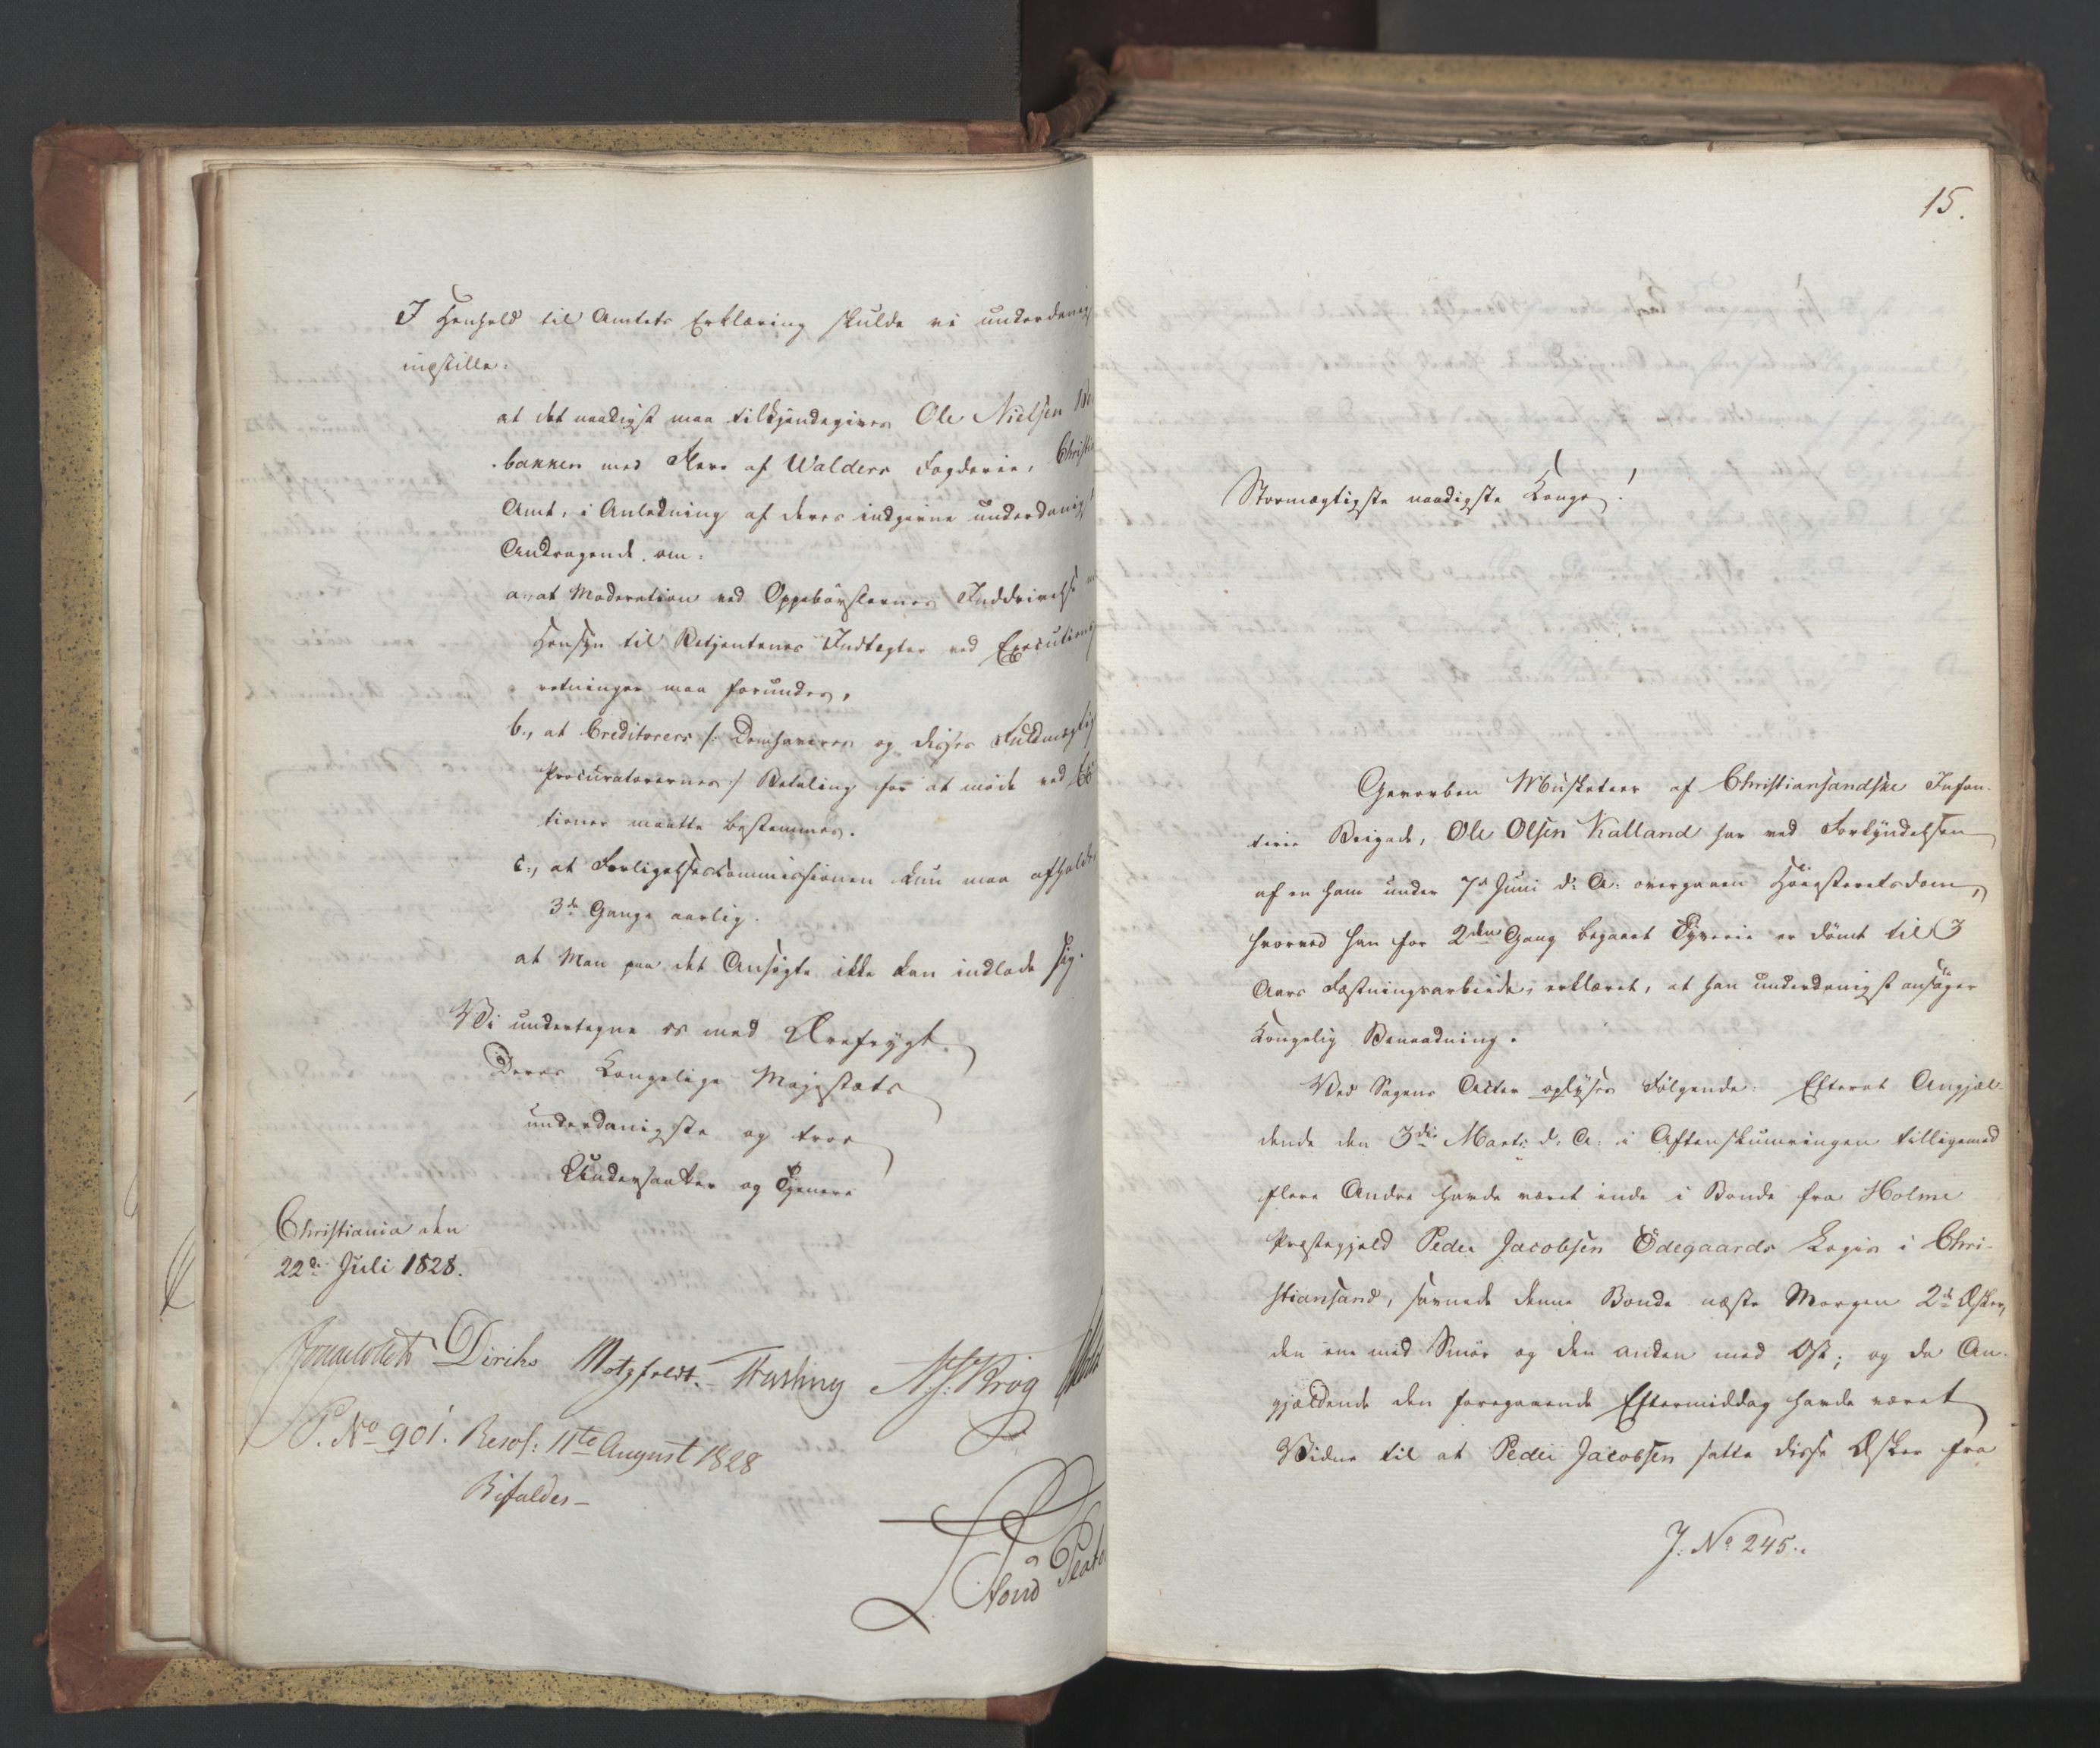 I Henhold til Amtets Erklæring skulde vi underdanigst
indstille:
at det naadigst maa tilkjendegives Ole Nielsen
bakken med Flere af Walders Fogderie, Christians
Amt, i Anledning af deres indgivne underdanigst
Andragende om:
a., at Moderation ved Oppebørslernes Inddrivelse
Hensyn til Betjentenes Indtægter ved Executions
retninger maa forundes,
b., at Creditorers /: Domhaveres og disses Fuldmægtig
Procuratorernes :/ Betaling for at møde ved
tioner maatte bestemmes.
c., at Forligelsescommissionen kun maa afholdes
3de Gange aarlig.
at Man paa det Ansøgte ikke kan indlade sig.
Vi undertegne os med Ærefrygt.
Deres Kongelige Majestæts
underdanigste og troe
Undersaatter og Tjenere
Christiania den
22de Juli 1828.
Diriks Motzfeldt. Fasting N. J. Krog
P. No 901. Resol: 11te August 1828
Bifaldes-
15.
Stormægtigste naadigste Konge!
Gevorben Musketeer af Christiansandske Infan-
terie Brigade, Ole Olsen Kalland har ved Forkyndelsen
af en ham under 7de Juni d: A: overgaaen Høiesteretsdom,
hvorved han for 2den Gang begaaet Tyverie er dømt til 3
Aars Fæstningsarbeide, erklæret, at han underdanigst ansøger
Kongelig Benaadning.
Ved Sagens Acter oplyses Følgende: Efterat Angjæl-
dende den 3die Marts d: A: i Aftenskumringen tilligemed
flere Andre havde været inde i Bonde fra Holme
Præstegjeld Peder Jacobsen Ödegaards Logis i Chri-
stiansand, savnede denne Bonde næste Morgen 2de Æsker,
den ene med Smør og den anden med Ost; og da An-
gjældende den foregaaende Eftermiddag havde været
Vidne til at Peder Jacobsen satte disse Æsker fra
J: No 245.